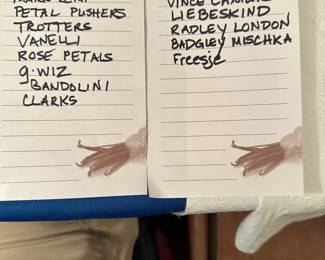 PETAL PUSHERS
TROTTERS
VANELLI
ROSE PETALS
g·WIZ
BANDOLINI
CLARKS
VINCE
LIEBESKIND
RADLEY LONDON
BADGLEY MISCHKA
Freesje